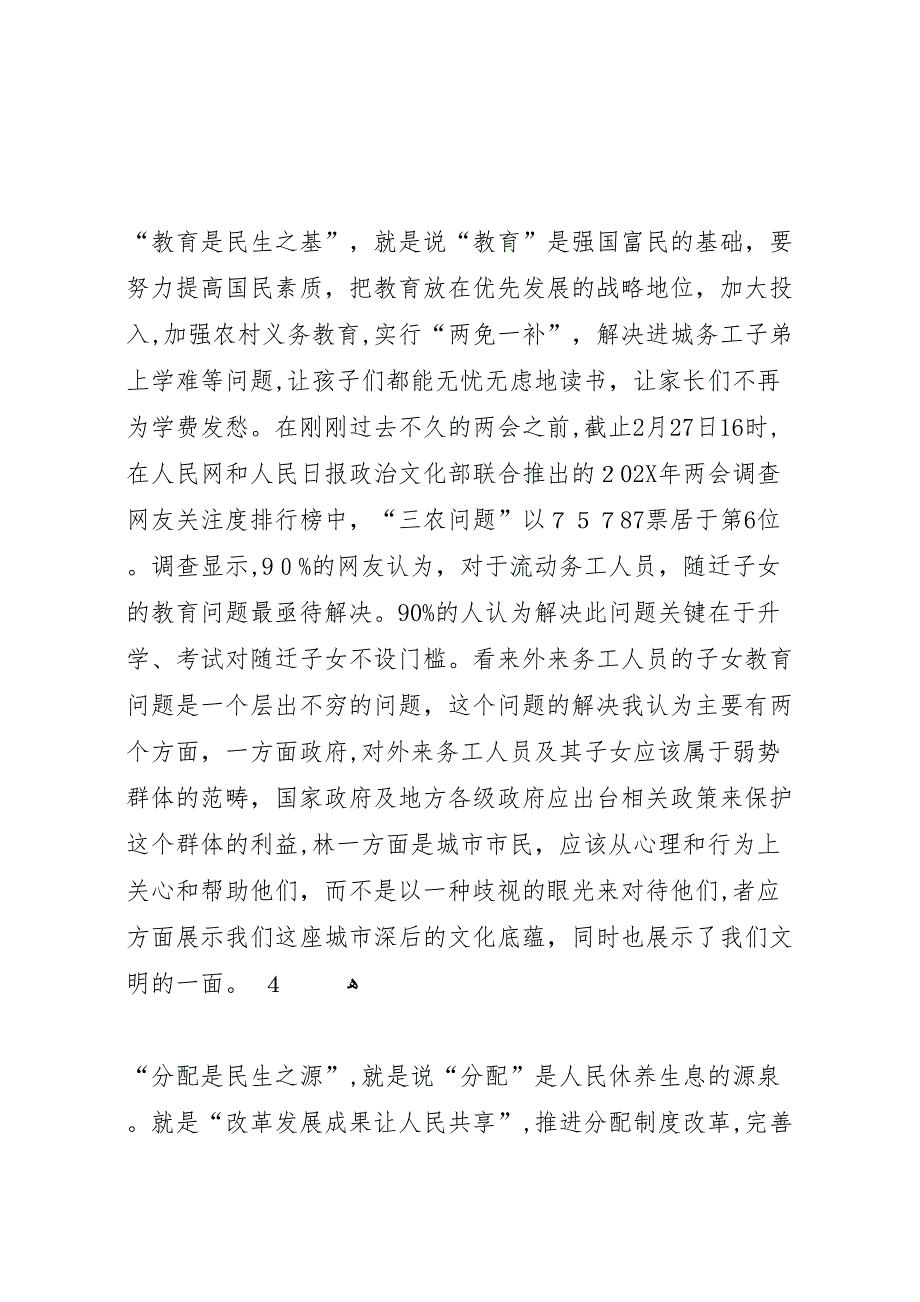 “教育是民生之基”，就是说“教育”是强国富民的基础，要
努力提高国民素质，把教育放在优先发展的战略地位，加大投
入,加强农村义务教育,实行“两免一补”，解决进城务工子弟
上学难等问题,让孩子们都能无忧无虑地读书，让家长们不再
为学费发愁。在刚刚过去不久的两会之前,截止2月27日16时,
在人民网和人民日报政治文化部联合推出的２02X年两会调查
网友关注度排行榜中，“三农问题”以７５７87票居于第6位
。调查显示,９０%的网友认为，对于流动务工人员，随迁子女
的教育问题最亟待解决。90%的人认为解决此问题关键在于升
学、考试对随迁子女不设门槛。看来外来务工人员的子女教育
问题是一个层出不穷的问题，这个问题的解决我认为主要有两
个方面，一方面政府,对外来务工人员及其子女应该属于弱势
群体的范畴，国家政府及地方各级政府应出台相关政策来保护
这个群体的利益,林一方面是城市市民，应该从心理和行为上
关心和帮助他们，而不是以一种歧视的眼光来对待他们,者应
方面展示我们这座城市深后的文化底蕴，同时也展示了我们文
明的一面。 4 ﻫ
“分配是民生之源”,就是说“分配”是人民休养生息的源泉
。就是“改革发展成果让人民共享”,推进分配制度改革,完善